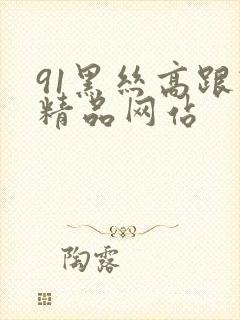 91黑丝高跟
精品网佔
陶露